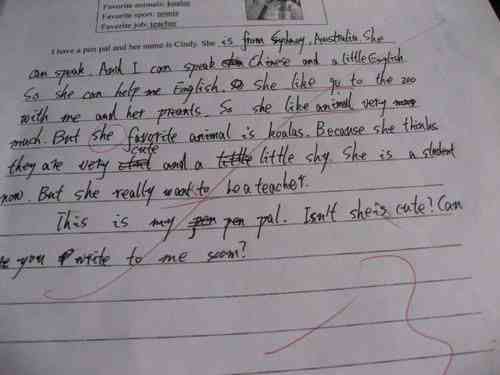 Favorite animal: koalas
Favorite sport: tennis
Favorite job: teacher
I have a pen pal and her name is Cindy. She is from Sydney, Australia. She
can speak. And I can speak Chinese and a little English.
So she can help me English. She like go to the zoo
with me and her preants. So she like animal very
much. But she favorite animal is koalas. Because she thinks
they are very cute and a little shy. She is a student
now. But she really want to be a teacher.
This is my pen pal. Isn't she is cute? Can
you write to me soom?